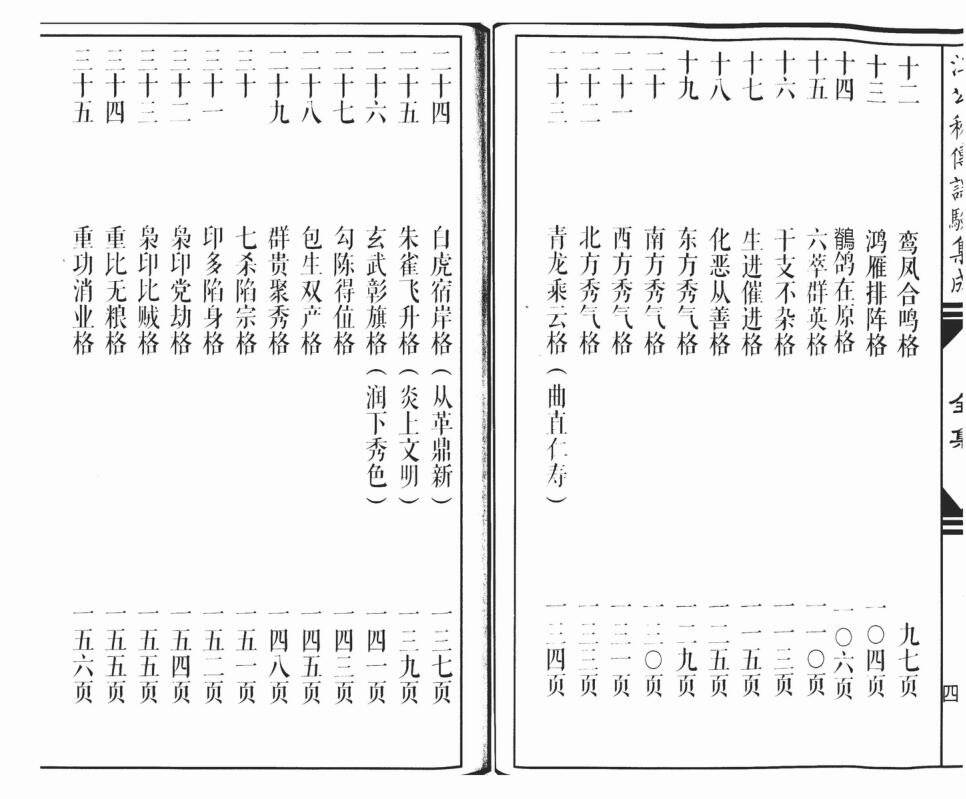 江公秘傳謁驗集成
全集
四
十二 鸾凤合鸣格 九七页
十三 鸿雁排阵格 一〇四页
十四 鶺鸽在原格 一〇六页
十五 六萃群英格 一一〇页
十六 干支不杂格 一一三页
十七 生进催进格 一一五页
十八 化恶从善格 一二五页
十九 东方秀气格 一二九页
二十 南方秀气格 一三〇页
二十一 西方秀气格 一三一页
二十二 北方秀气格 一三三页
二十三 青龙乘云格(曲直仁寿) 一三四页
二十四 白虎宿岸格(从革鼎新) 一三七页
二十五 朱雀飞升格(炎上文明) 一三九页
二十六 玄武彰旗格(润下秀色) 一四一页
二十七 勾陈得位格 一四三页
二十八 包生双产格 一四五页
二十九 群贵聚秀格 一四八页
三十 七杀陷宗格 一五一页
三十一 印多陷身格 一五二页
三十二 枭印党劫格 一五四页
三十三 枭印比贼格 一五五页
三十四 重比无粮格 一五五页
三十五 重功消业格 一五六页